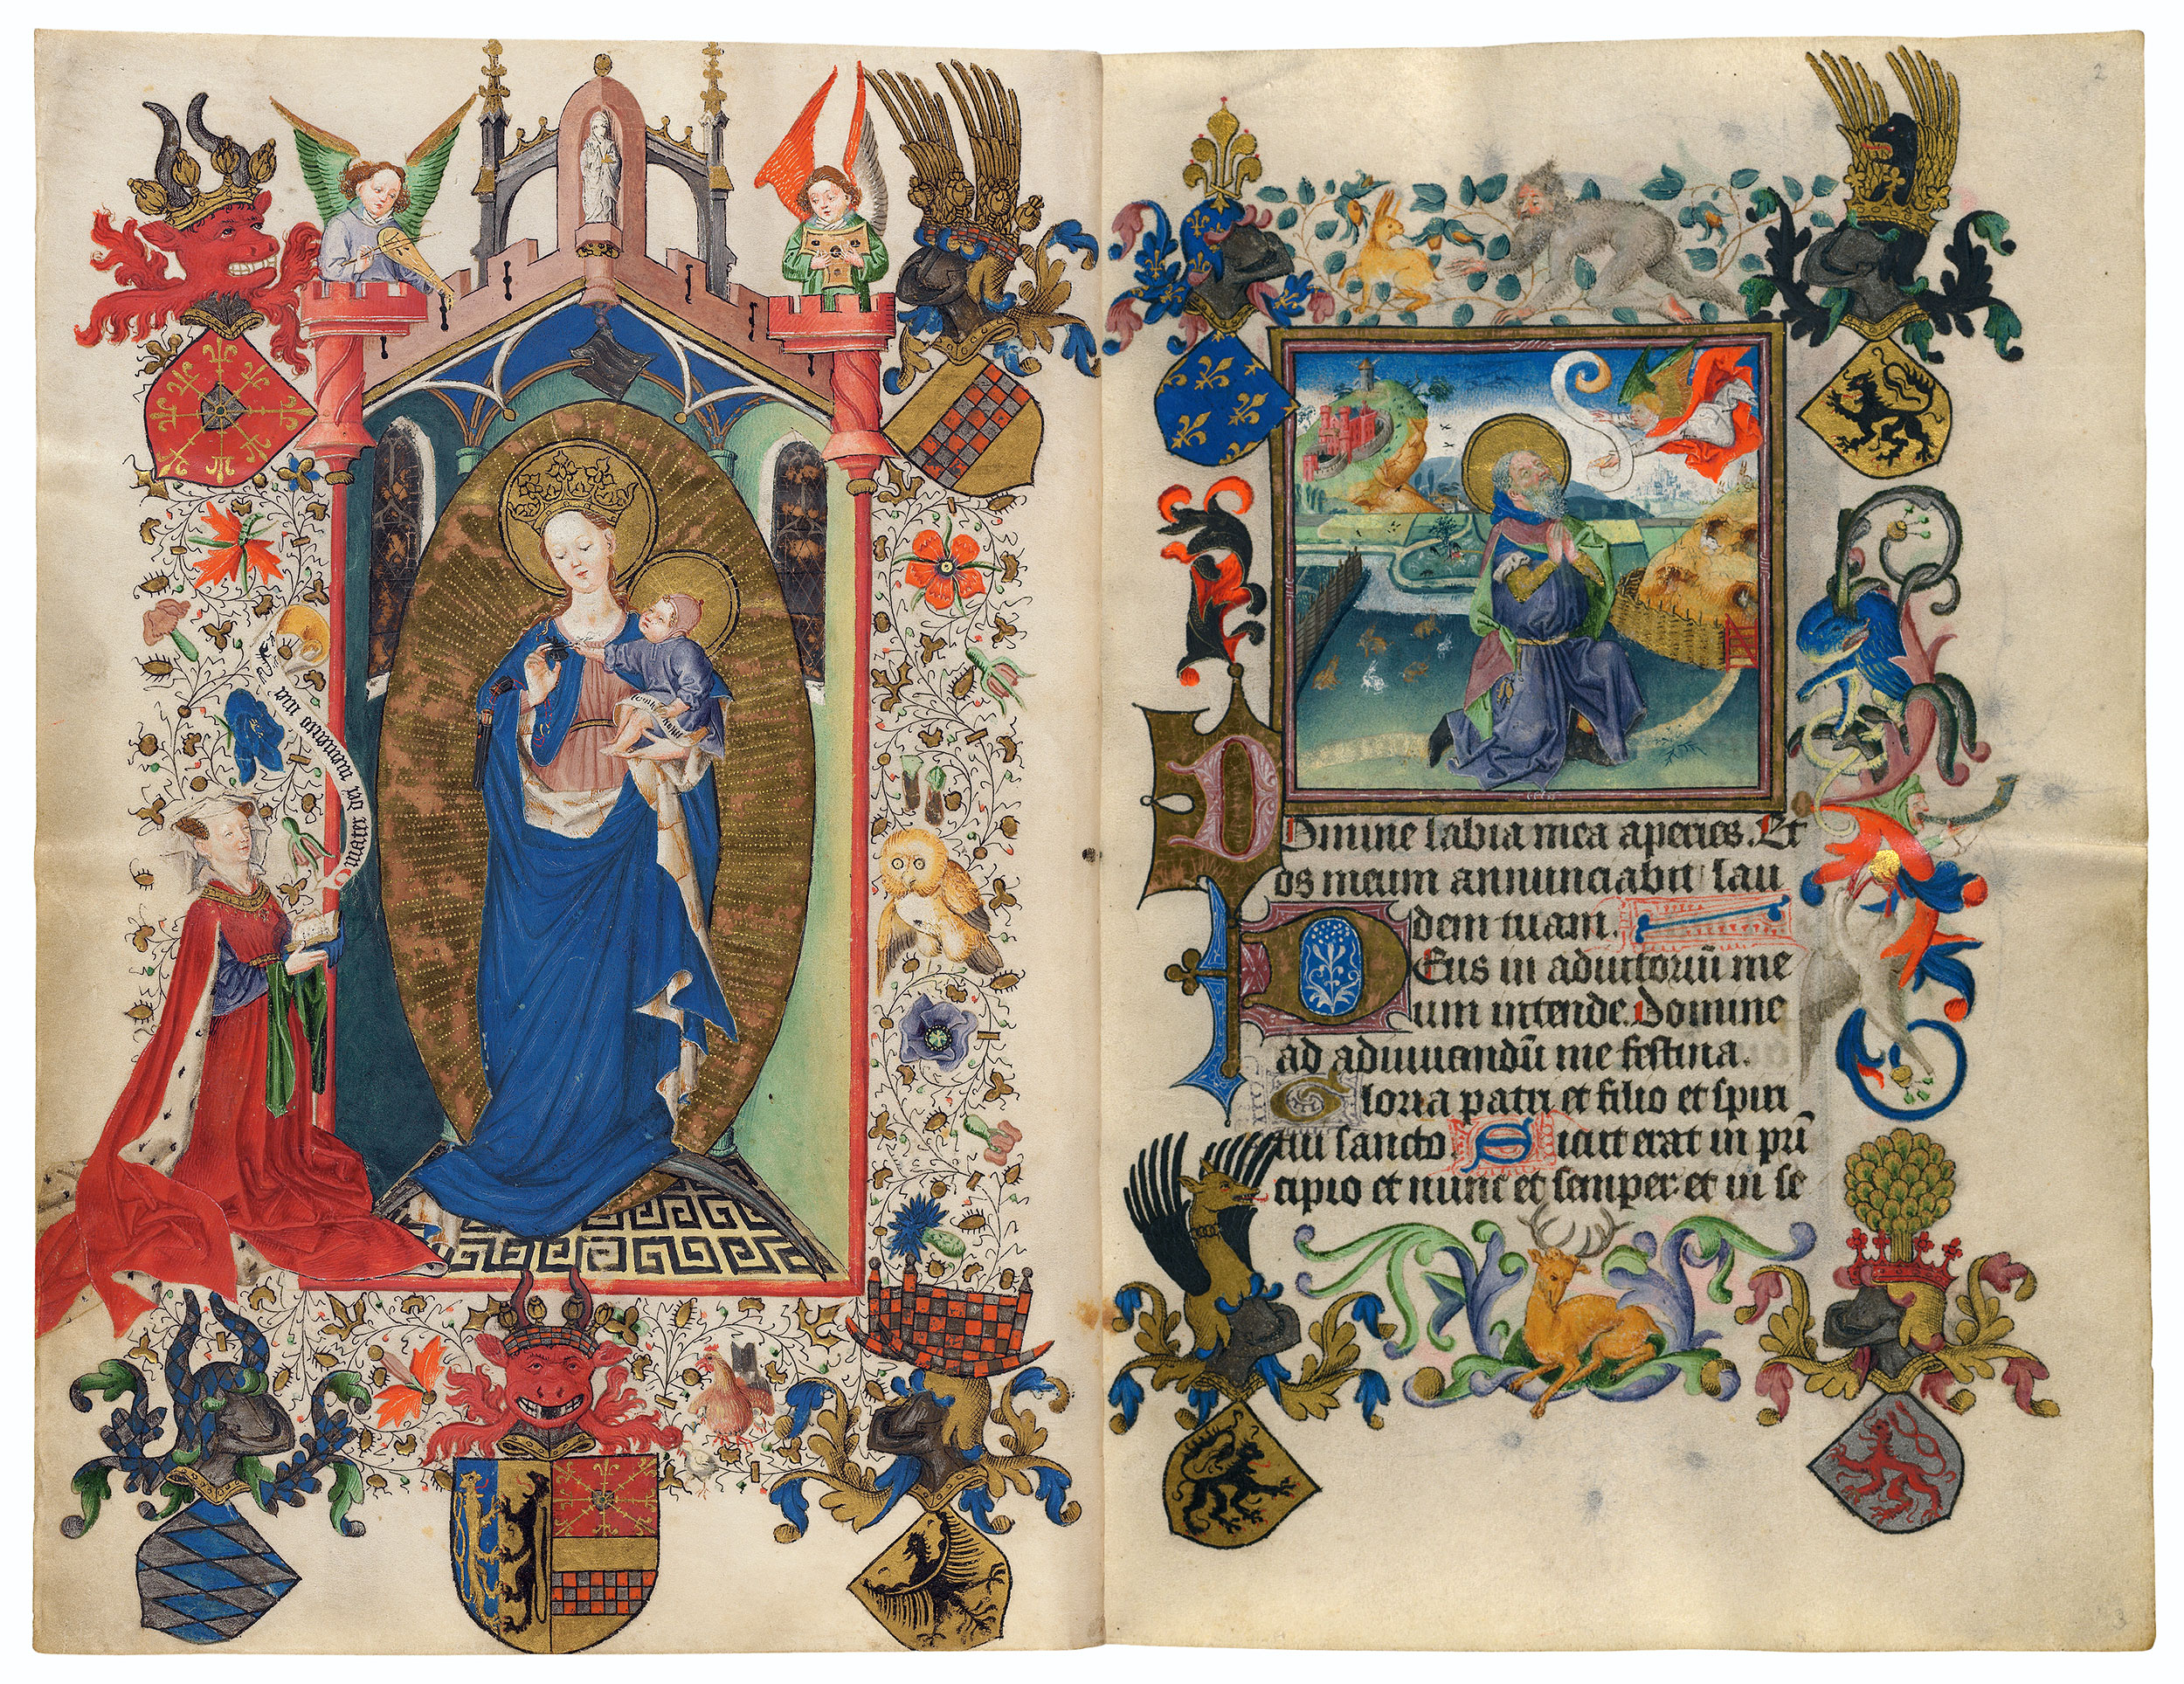 O mater dei memento mei
2
Domine labia mea aperies. Et
os meum annunciabit lau
dem tuam.
Deus in adiutoriū me
um intende. Domine
ad adiuuandū me festina.
Gloria patri et filio et spiri
tui sancto. Sicut erat in prī
cipio et nunc et semper: et in se
3